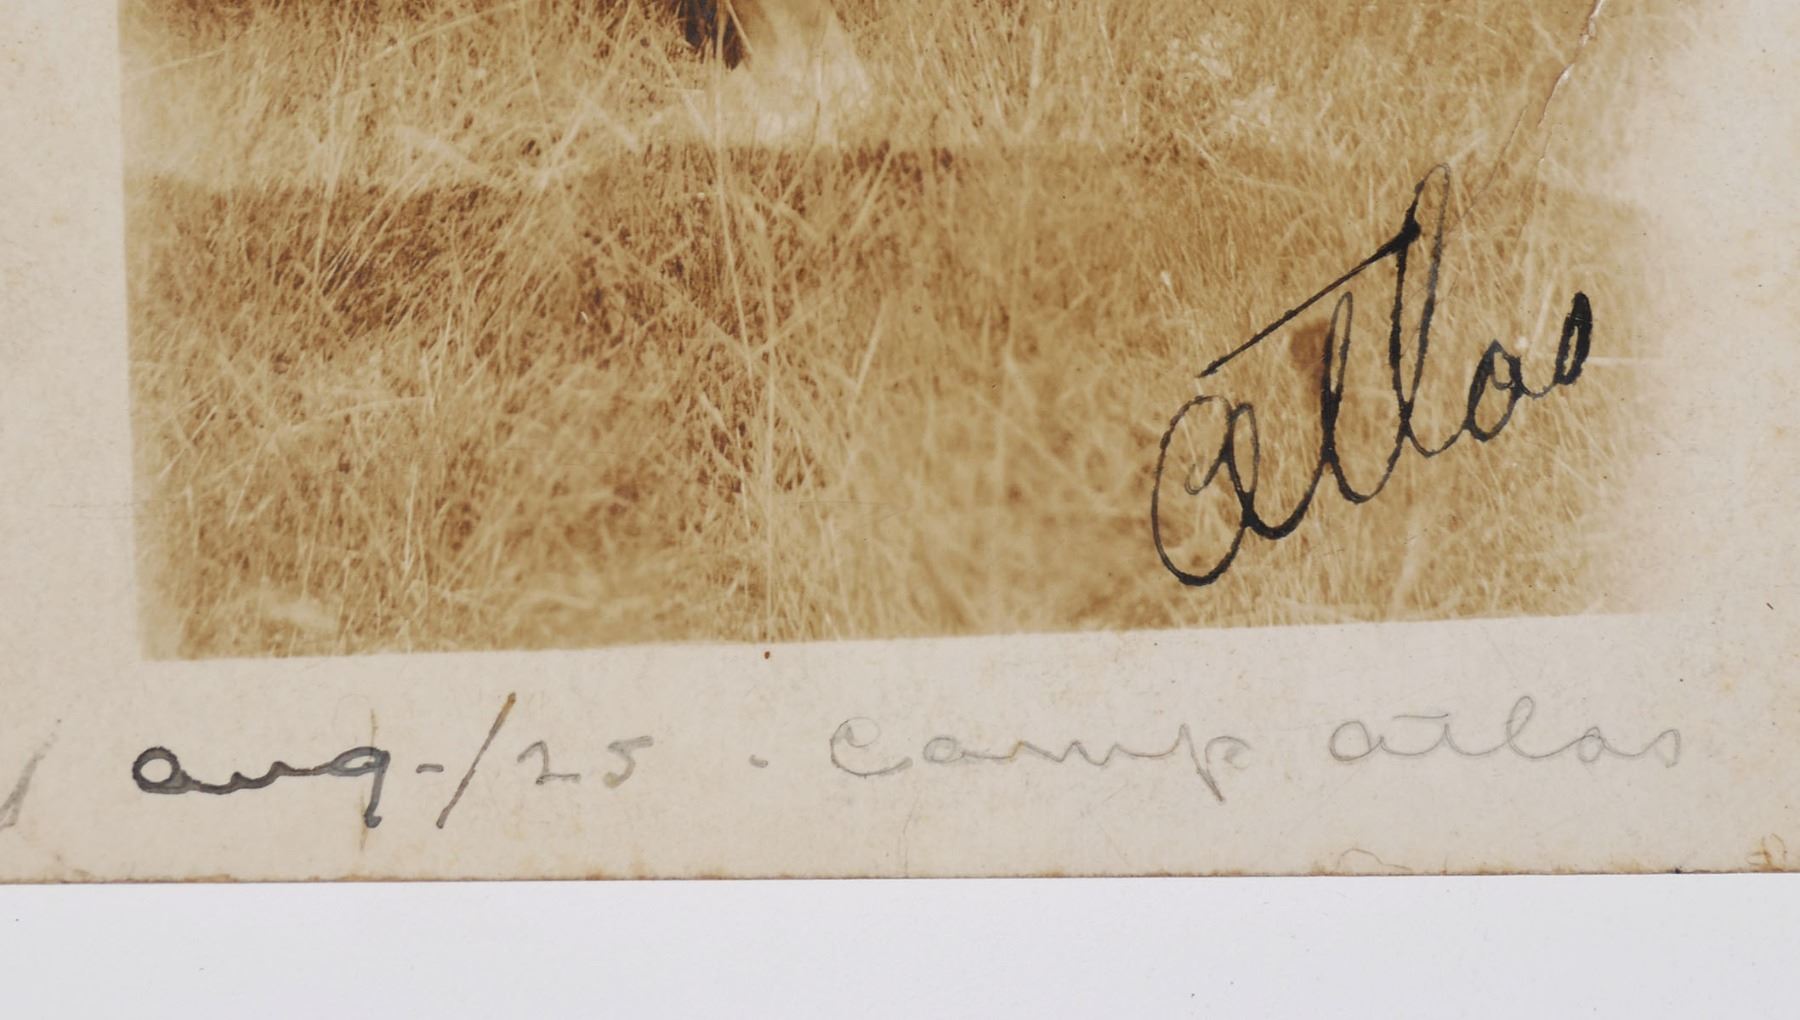 atlas
aug-/25 . Camp atlas